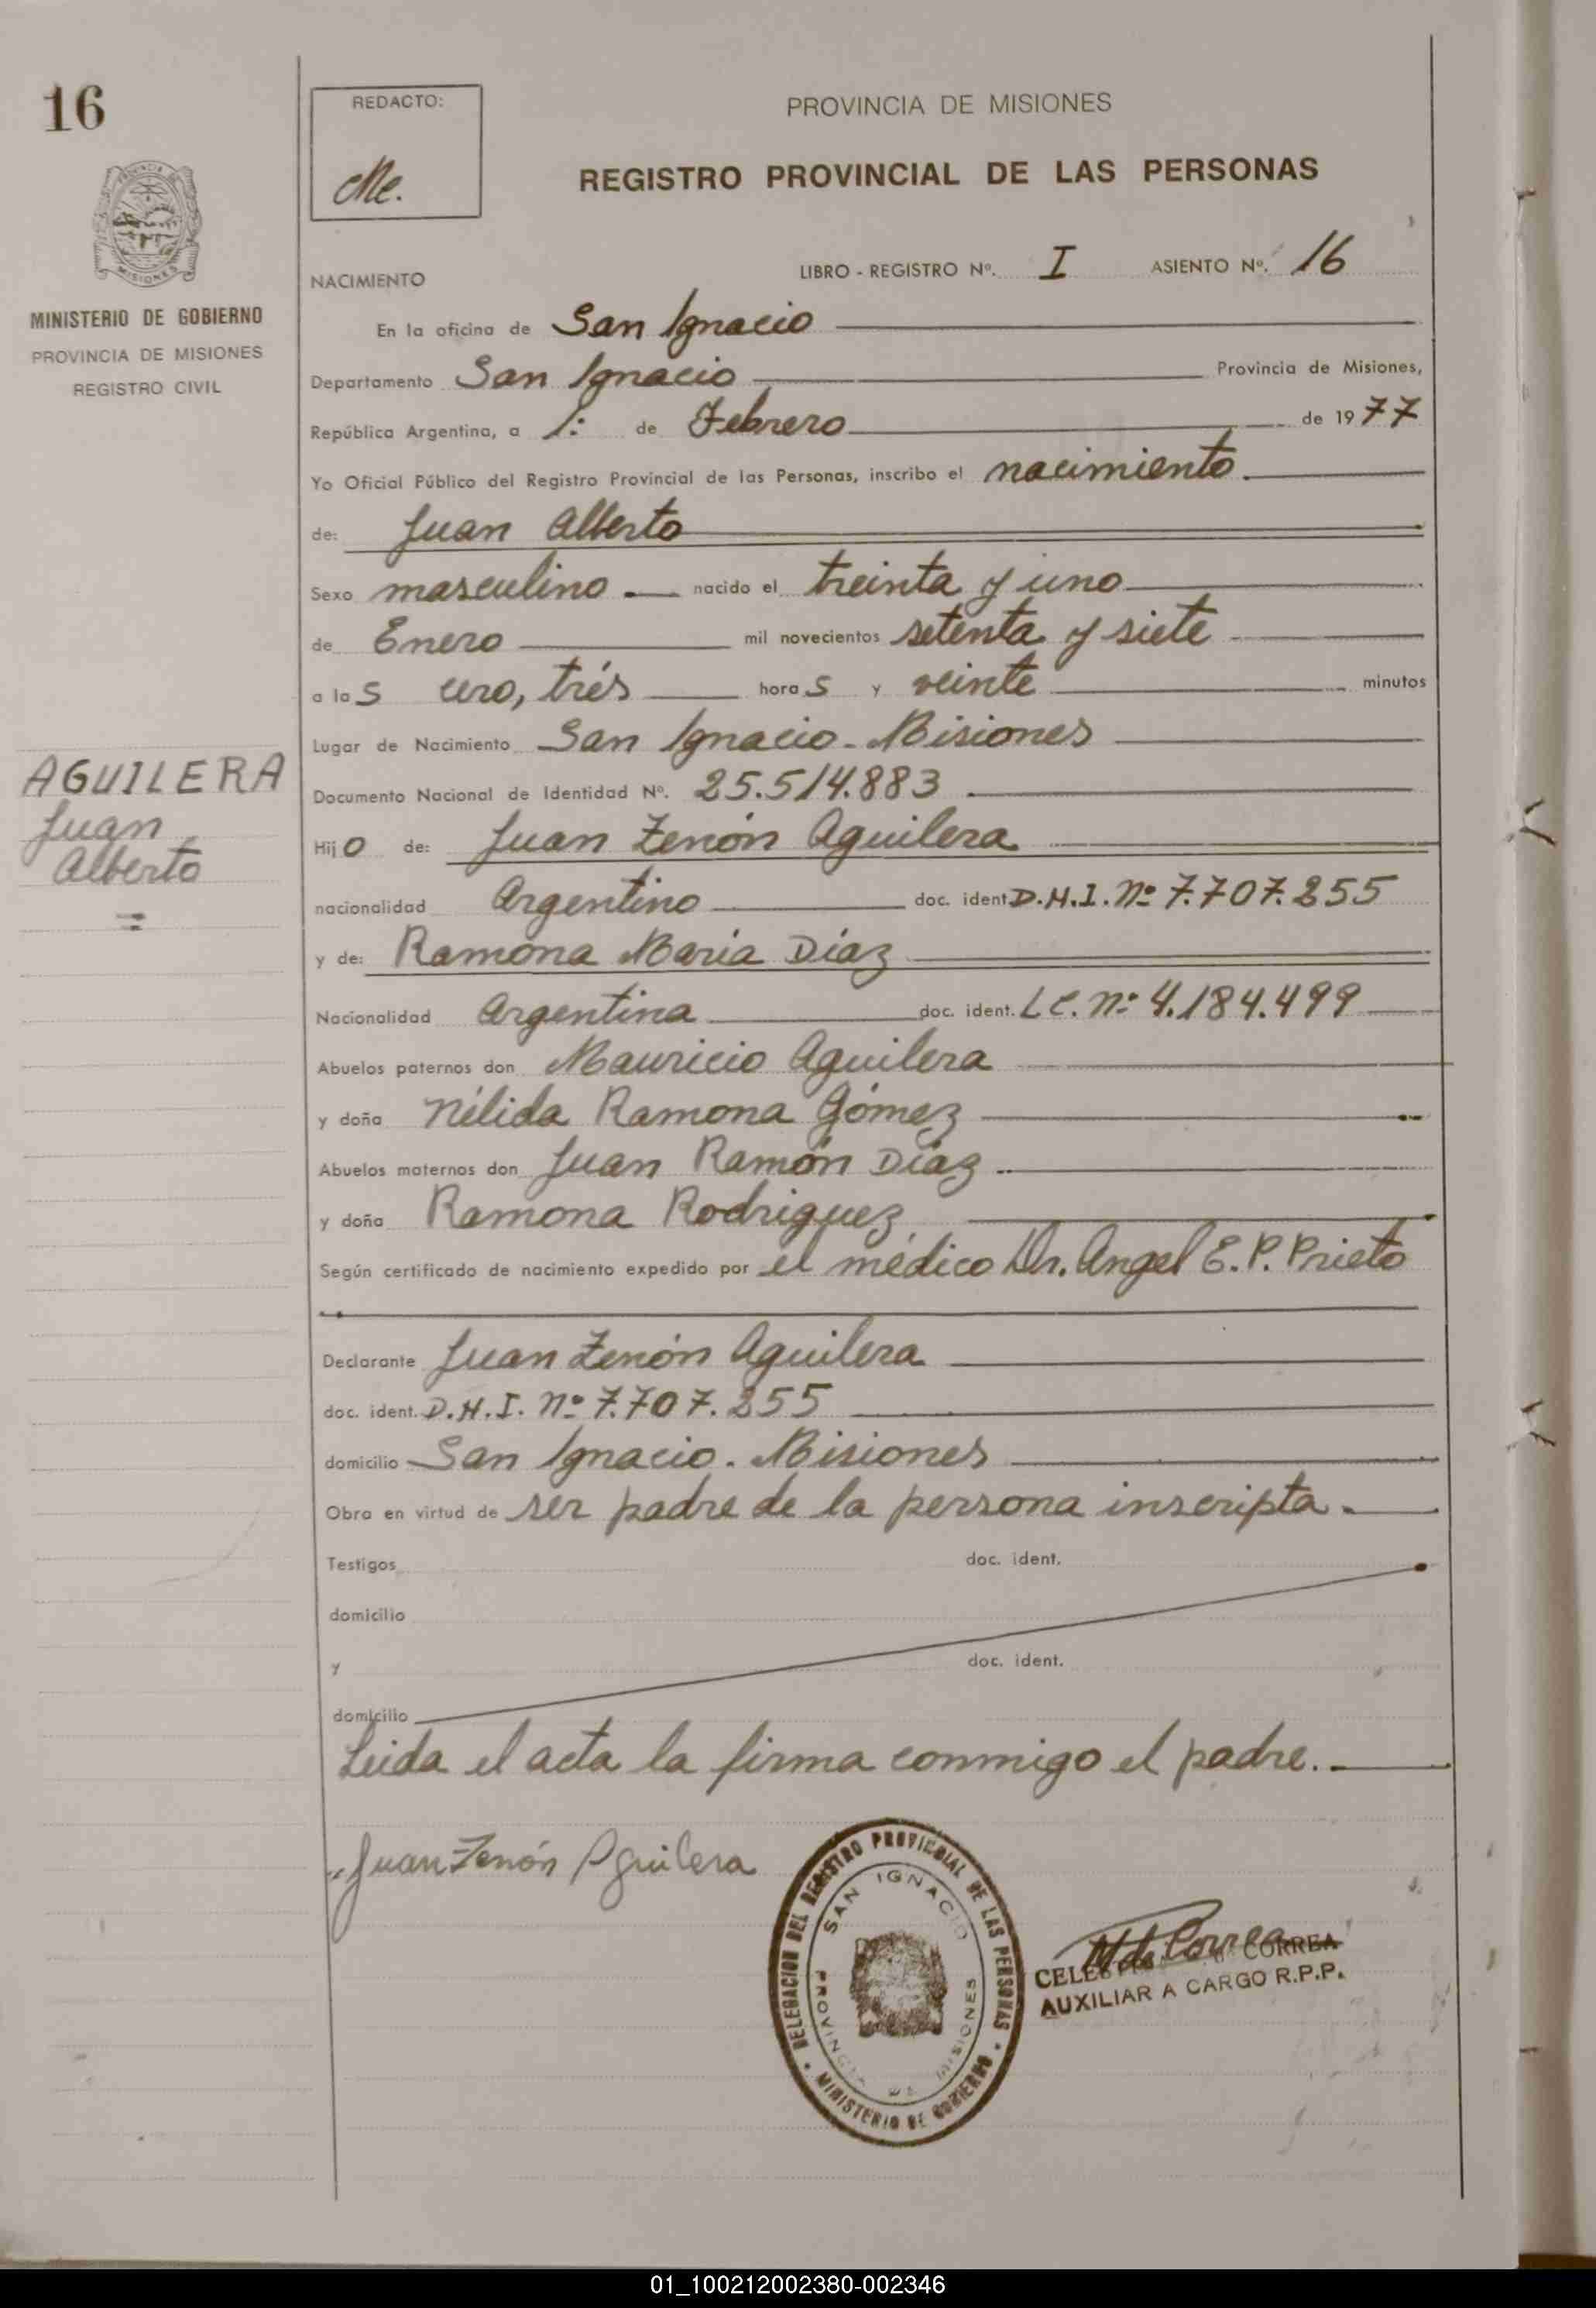 16
REDACTO:
Me.
PROVINCIA DE MISIONES
REGISTRO PROVINCIAL DE LAS PERSONAS
PROVINCIA DE
MISIONES
MINISTERIO DE GOBIERNO
PROVINCIA DE MISIONES
REGISTRO CIVIL
NACIMIENTO LIBRO - REGISTRO Nº. I ASIENTO Nº. 16
En la oficina de San Ignacio
Departamento San Ignacio Provincia de Misiones,
República Argentina, a 1: de Febrero de 1977
Yo Oficial Público del Registro Provincial de las Personas, inscribo el nacimiento.
de: Juan Alberto
Sexo masculino nacido el treinta y uno
de Enero mil novecientos setenta y siete
a las cero, trés horas y veinte minutos
Lugar de Nacimiento San Ignacio - Misiones
AGUILERA
Juan
Alberto
=
Documento Nacional de Identidad Nº. 25.514.883
Hijo de: Juan Zenón Aguilera
nacionalidad Argentino doc. ident D.N.I. Nº 7.707.255
y de: Ramona Maria Diaz
Nacionalidad Argentina doc. ident. L.C. nº 4.184.499
Abuelos paternos don Mauricio Aguilera
y doña Nélida Ramona Gómez
Abuelos maternos don Juan Ramón Diaz
y doña Ramona Rodriguez
Según certificado de nacimiento expedido por el médico Dr. Angel E. P. Prieto
Declarante Juan Zenón Aguilera
doc. ident. D.N.I. Nº 7.707.255
domicilio San Ignacio. Misiones
Obra en virtud de ser padre de la persona inscripta.
Testigos doc. ident.
domicilio
y doc. ident.
domicilio
Leida el acta la firma conmigo el padre.
Juan Zenón Aguilera
DELEGACION DEL REGISTRO PROVINCIAL DE LAS PERSONAS
SAN IGNACIO
PROVINCIA DE MISIONES
MINISTERIO DE GOBIERNO
CORREA
AUXILIAR A CARGO R.P.P.
01_100212002380-002346